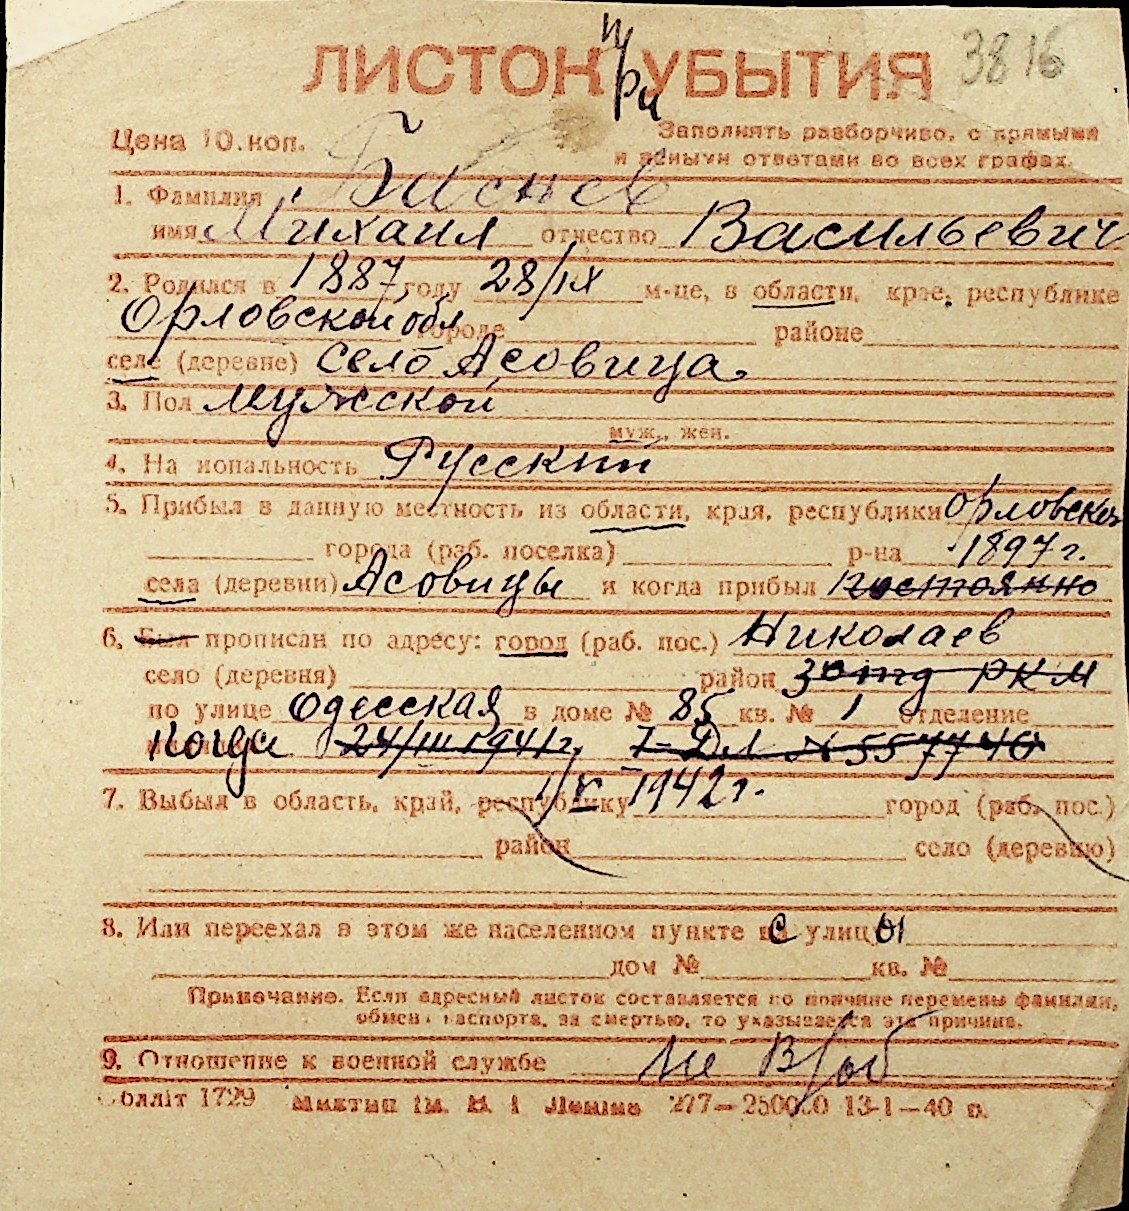 ЛИСТОК при УБЫТИЯ 3816
Цена 10 коп. Заполнять разборчиво, с прямыми
и ясными ответами во всех графах.
1. Фамилия
имя Михаил отчество Васильевич
2. Родился в 1887 году 28/IX м-це, в области, крае, республике
Орловской обл городе районе
селе (деревне) село Асовица
3. Пол мужской
муж., жен.
4. На иональность Русский
5. Прибыл в данную местность из области, края, республики Орловской
города (раб. поселка) р-на 1897 г.
села (деревни) Асовицы и когда прибыл постоянно
6. Был прописан по адресу: город (раб. пос.) Николаев
село (деревня) район 3 отд РКМ
по улице Одесская в доме № 85 кв. № 1 отделение
Когда 24/III 1941 г. I-ДЛ № 557740
7. Выбыл в область, край, республику 1/V 1942 г. город (раб. пос.)
район село (деревню)
8. Или переехал в этом же населенном пункте с улицы
дом № кв. №
Примечание. Если адресный листок составляется по причине перемены фамилии,
обмена паспорта, за смертью, то указывается эта причина.
9. Отношение к военной службе не в/об
Облліт 1729 Миктип ім. В. І Леніна 277—250000 13-1—40 р.